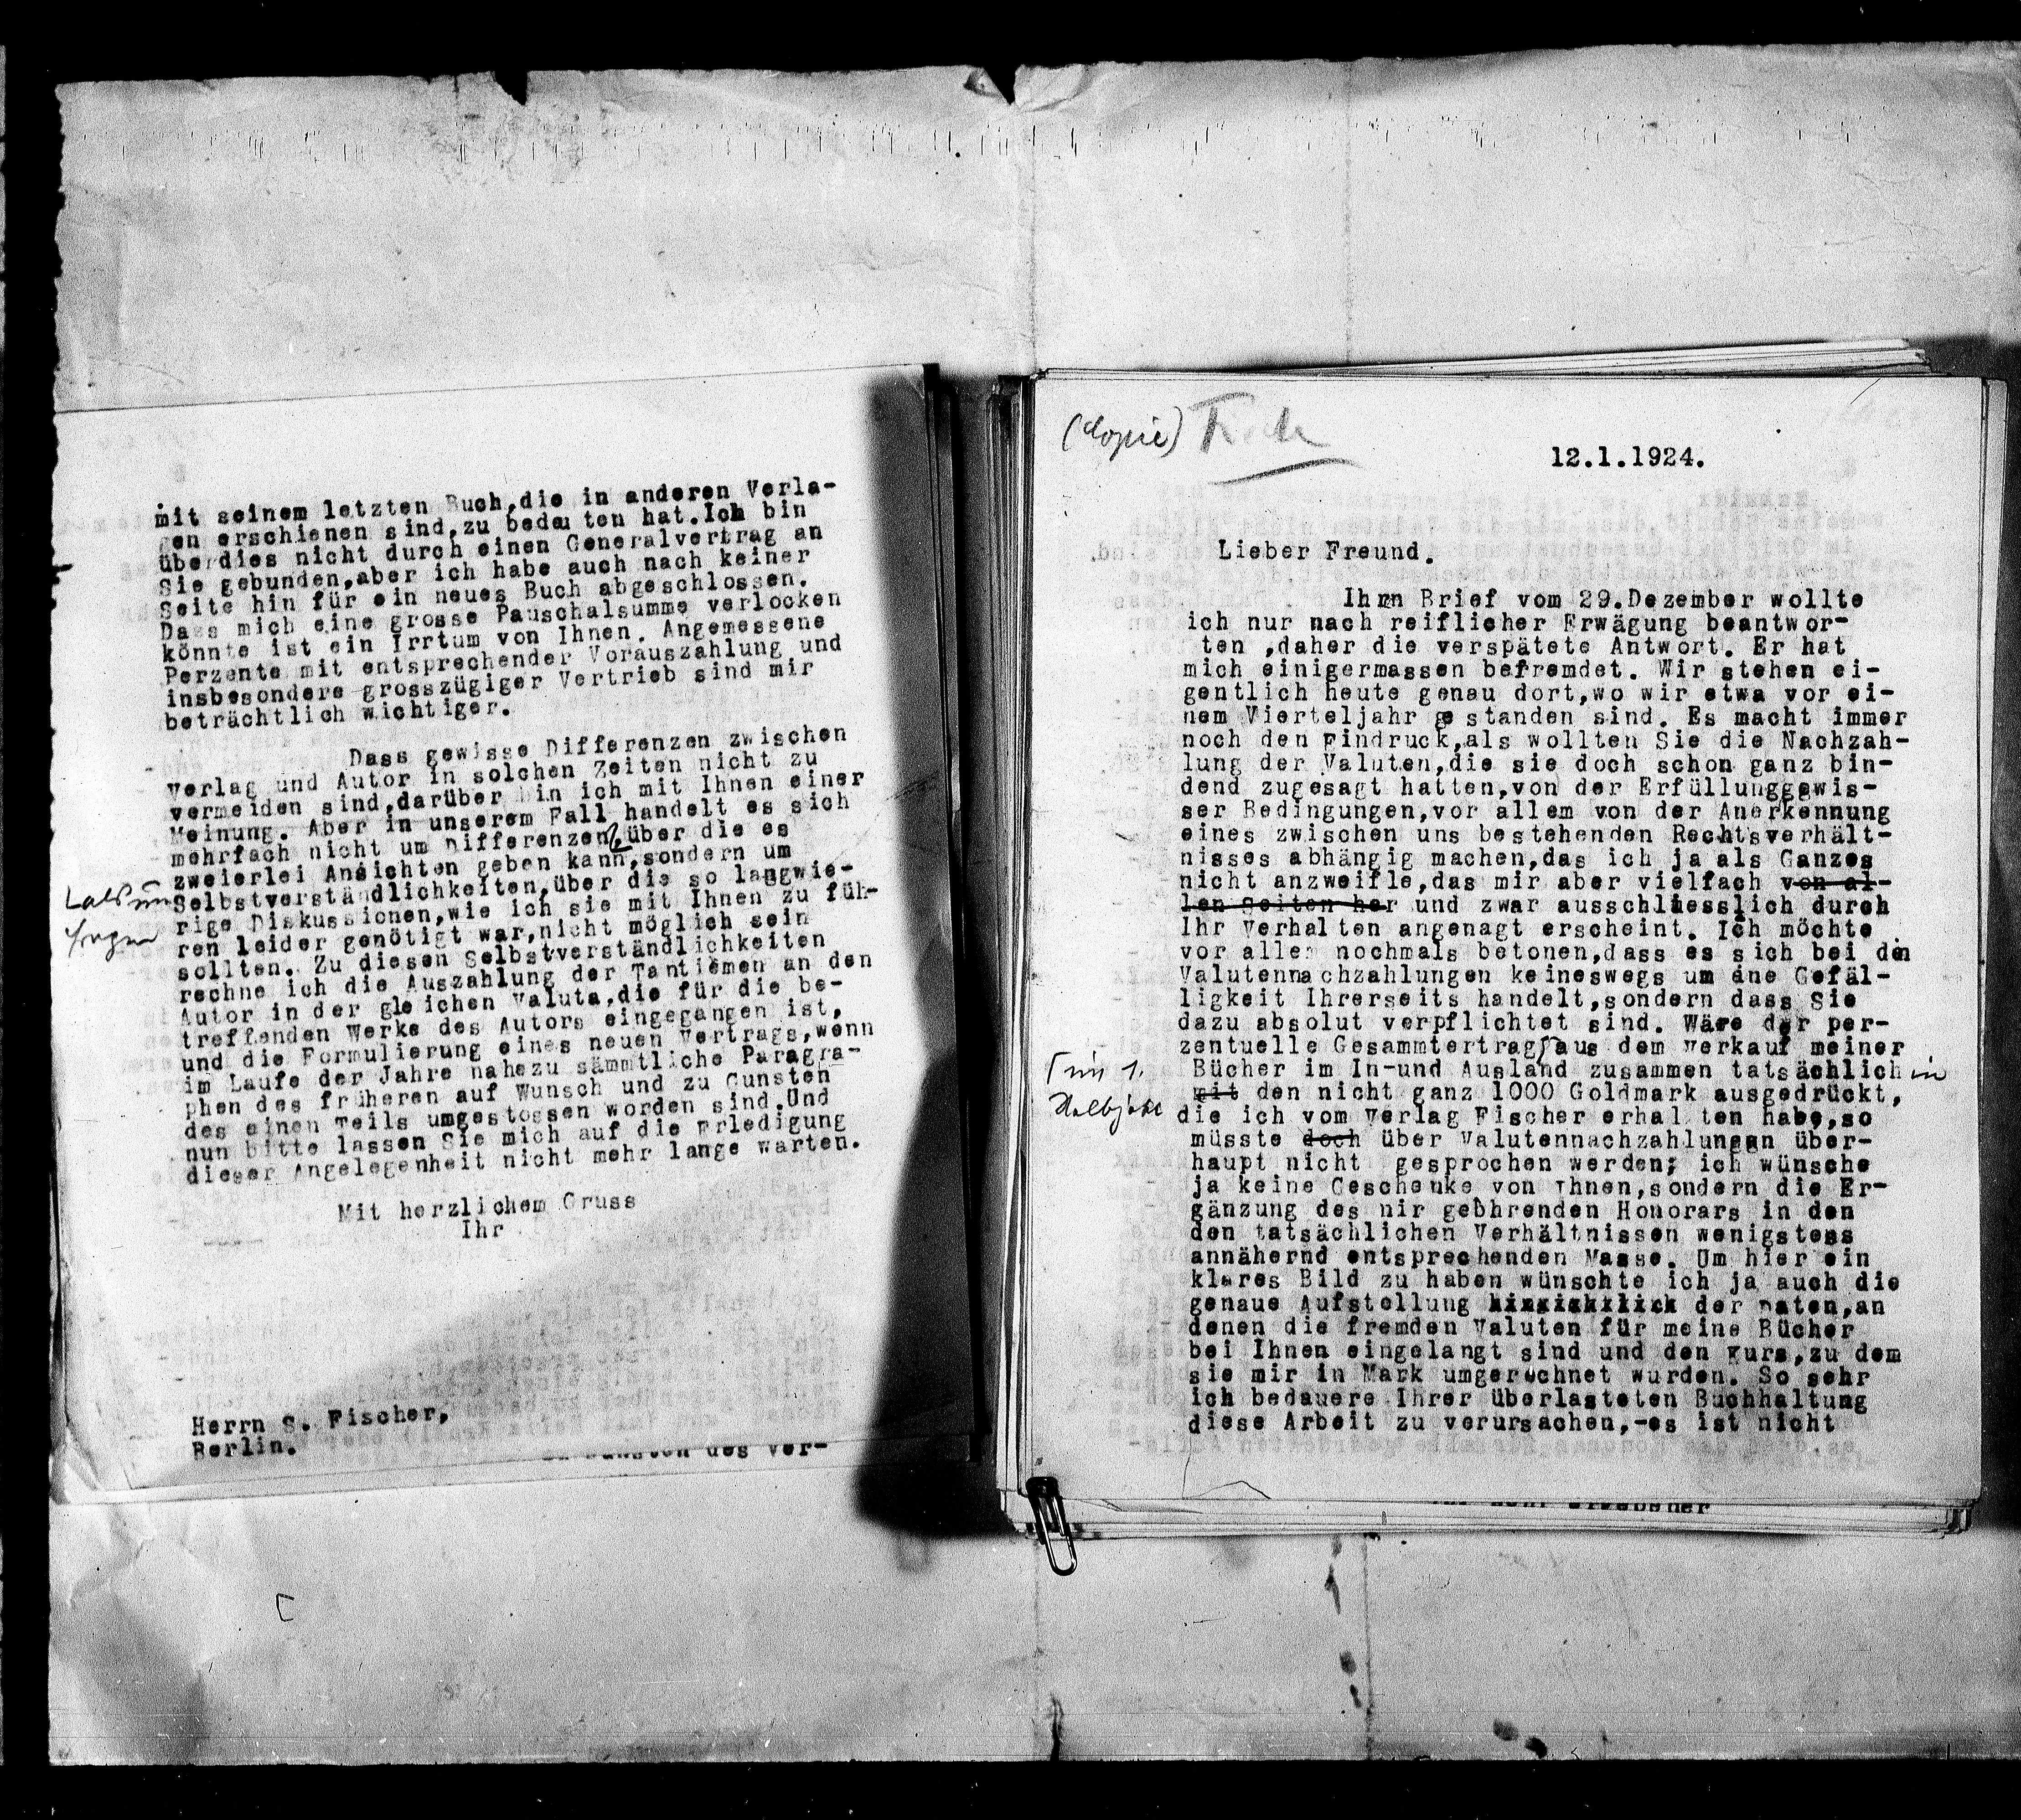 mit seinem letzten Buch,die in anderen Verla-
gen erschienen sind,zu bedeu ten hat.Ich bin
überdies nicht durch einen Generalvertrag an
Sie gebunden,aber ich habe auch nach keiner
Seite hin für ein neues Buch abgeschlossen.
Dass mich eine grosse Pauschalsumme verlocken
könnte ist ein Irrtum von Ihnen. Angemessene
Perzente mit entsprechender Vorauszahlung und
insbesondere grosszügiger Vertrieb sind mir
beträchtlich wichtiger.
Dass gewisse Differenzen zwischen
Verlag und Autor in solchen Zeiten nicht zu
vermeiden sind,darüber bin ich mit Ihnen einer
Meinung. Aber in unserem Fall handelt es sich
mehrfach nicht um Differenzen über die es
zweierlei Ansichten geben kann,sondern um
Selbstverständlichkeiten,über die so langwie-
rige Diskussionen,wie ich sie mit Ihnen zu füh-
ren leider genötigt war,nicht möglich sein
sollten. Zu diesen Selbstverständlichkeiten
rechne ich die Auszahlung der Tantièmen an den
Autor in der gleichen Valuta,die für die be-
treffenden Werke des Autors eingegangen ist,
und die Formulierung eines neuen Vertrags,wenn
im Laufe der Jahre nahezu sämmtliche Paragra-
phen des früheren auf Wunsch und zu Gunsten
des einen Teils umgestossen worden sind.Und
nun bitte lassen Sie mich auf die Erledigung
dieser Angelegenheit nicht mehr lange warten.
Mit herzlichem Gruss
Ihr
Herrn S. Fischer,
Berlin.
des Ver-
(Copie)
12.1.1924.
Lieber Freund.
Ihren Brief vom 29.Dezember wollte
ich nur nach reiflicher Erwägung beantwor-
ten ,daher die verspätete Antwort. Er hat
mich einigermassen befremdet. Wir stehen ei-
gentlich heute genau dort,wo wir etwa vor ei-
nem Vierteljahr ge standen sind. Es macht immer
noch den Eindruck,als wollten Sie die Nachzah-
lung der Valuten,die sie doch schon ganz bin-
dend zugesagt hatten,von der Erfüllunggewis-
ser Bedingungen,vor allem von der Anerkennung
eines zwischen uns bestehenden Rechtsverhält-
nisses abhängig machen,das ich ja als Ganzes
nicht anzweifle,das mir aber vielfach von al-
len Seiten her und zwar ausschliesslich durch
Ihr Verhalten angenagt erscheint. Ich möchte
vor allem nochmals betonen,dass es sich bei den
Valutennachzahlungen keineswegs um eine Gefäl-
ligkeit Ihrerseits handelt,sondern dass Sie
dazu absolut verpflichtet sind. Wäre der per-
zentuelle Gesammtertrag aus dem Verkauf meiner
Γ im 1. Halbjahr
Bücher im In-und Ausland zusammen tatsächlich in
mit den nicht ganz 1000 Goldmark ausgedrückt,
die ich vom Verlag Fischer erhal ten habe,so
müsste doch über Valutennachzahlungen über-
haupt nicht gesprochen werden; ich wünsche
ja keine Geschenke von Ihnen,sondern die Er-
gänzung des mir gebhrenden Honorars in den
den tatsächlichen Verhältnissen wenigstess
annähernd entsprechenden Masse. Um hier ein
klares Bild zu haben wünschte ich ja auch die
genaue Aufstellung hinsichtlich der Daten,an
denen die fremden Valuten für meine Bücher
bei Ihnen eingelangt sind und den Kurs,zu dem
sie mir in Mark umgerechnet wurden. So sehr
ich bedauere Ihrer überlasteten Buchhaltung
diese Arbeit zu verursachen,-es ist nicht